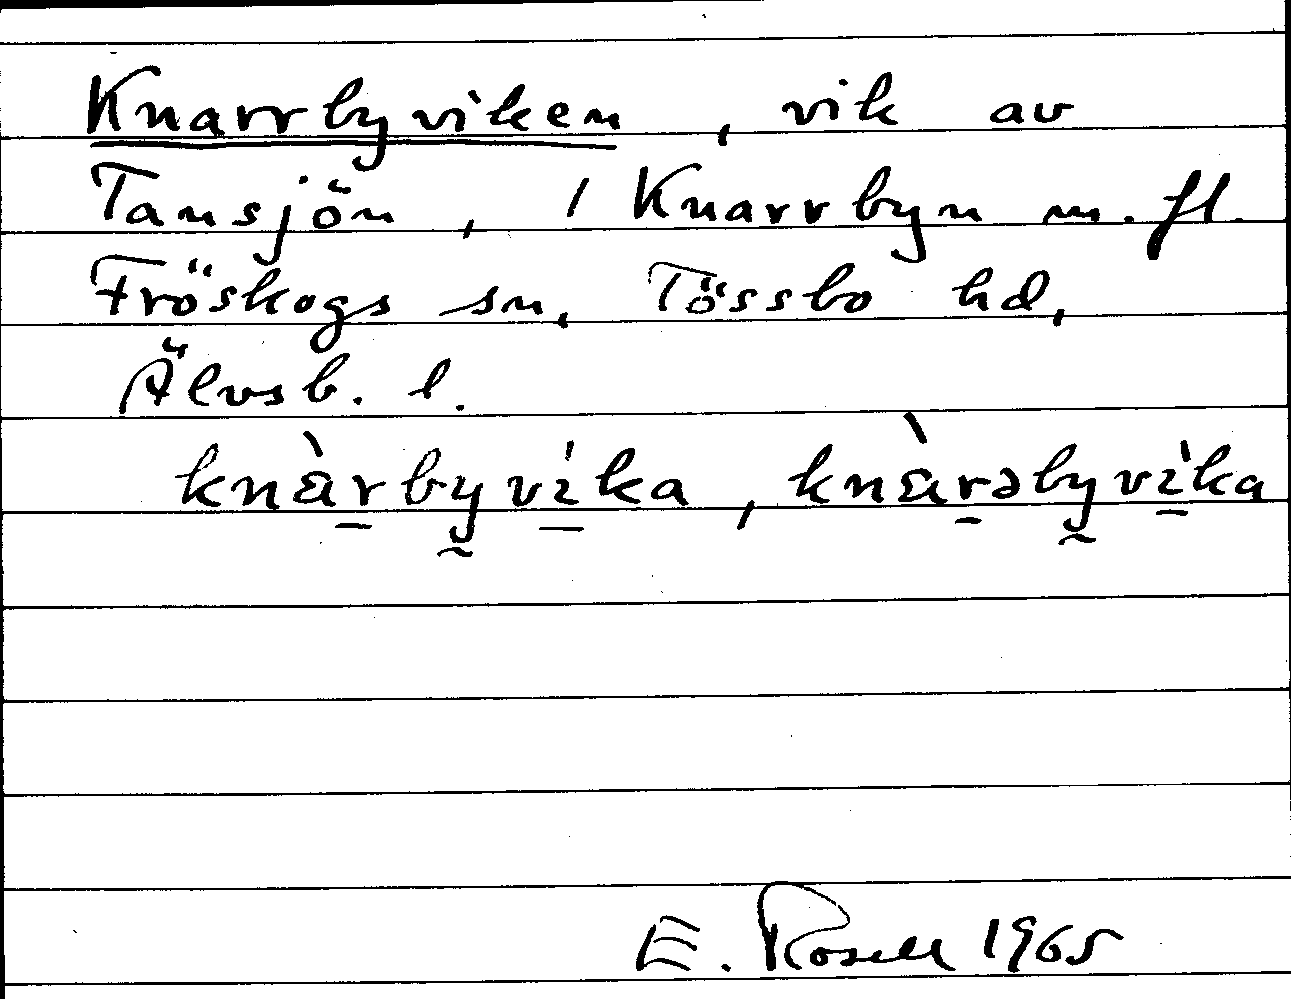 Knarrbyviken, vik av
Tansjön, / Knarrbyn m. fl.
Fröskogs sn, Tössbo hd,
Älvsb. l.
knàrbyvíka, knàrəbyvìka
E. Rosell 1965